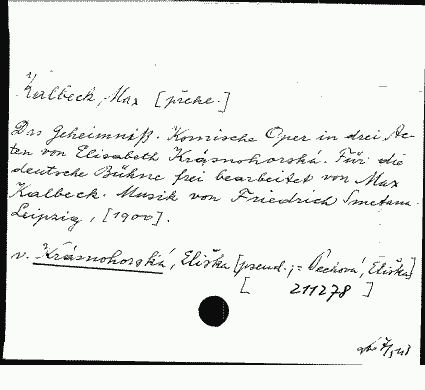 Kalbeck, Max [překl.]
Das Geheimniß. Komische Oper in drei Ac-
ten von Elisabeth Krásnohorská. Für die
deutsche Bühne frei bearbeitet von Max
Kalbeck. Musik von Friedrich Smetana.
Leipzig, [1900].
v. Krásnohorská, Eliška [pseud.; = Pechová, Eliška]
[ 211278 ]